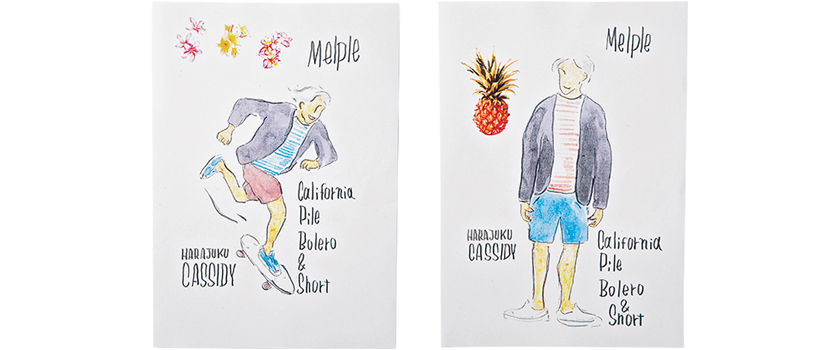 Melple
California
Pile
Bolero
&
Short
HARAJUKU
CASSIDY
Melple
HARAJUKU
CASSIDY
California
Pile
Bolero
&
Short